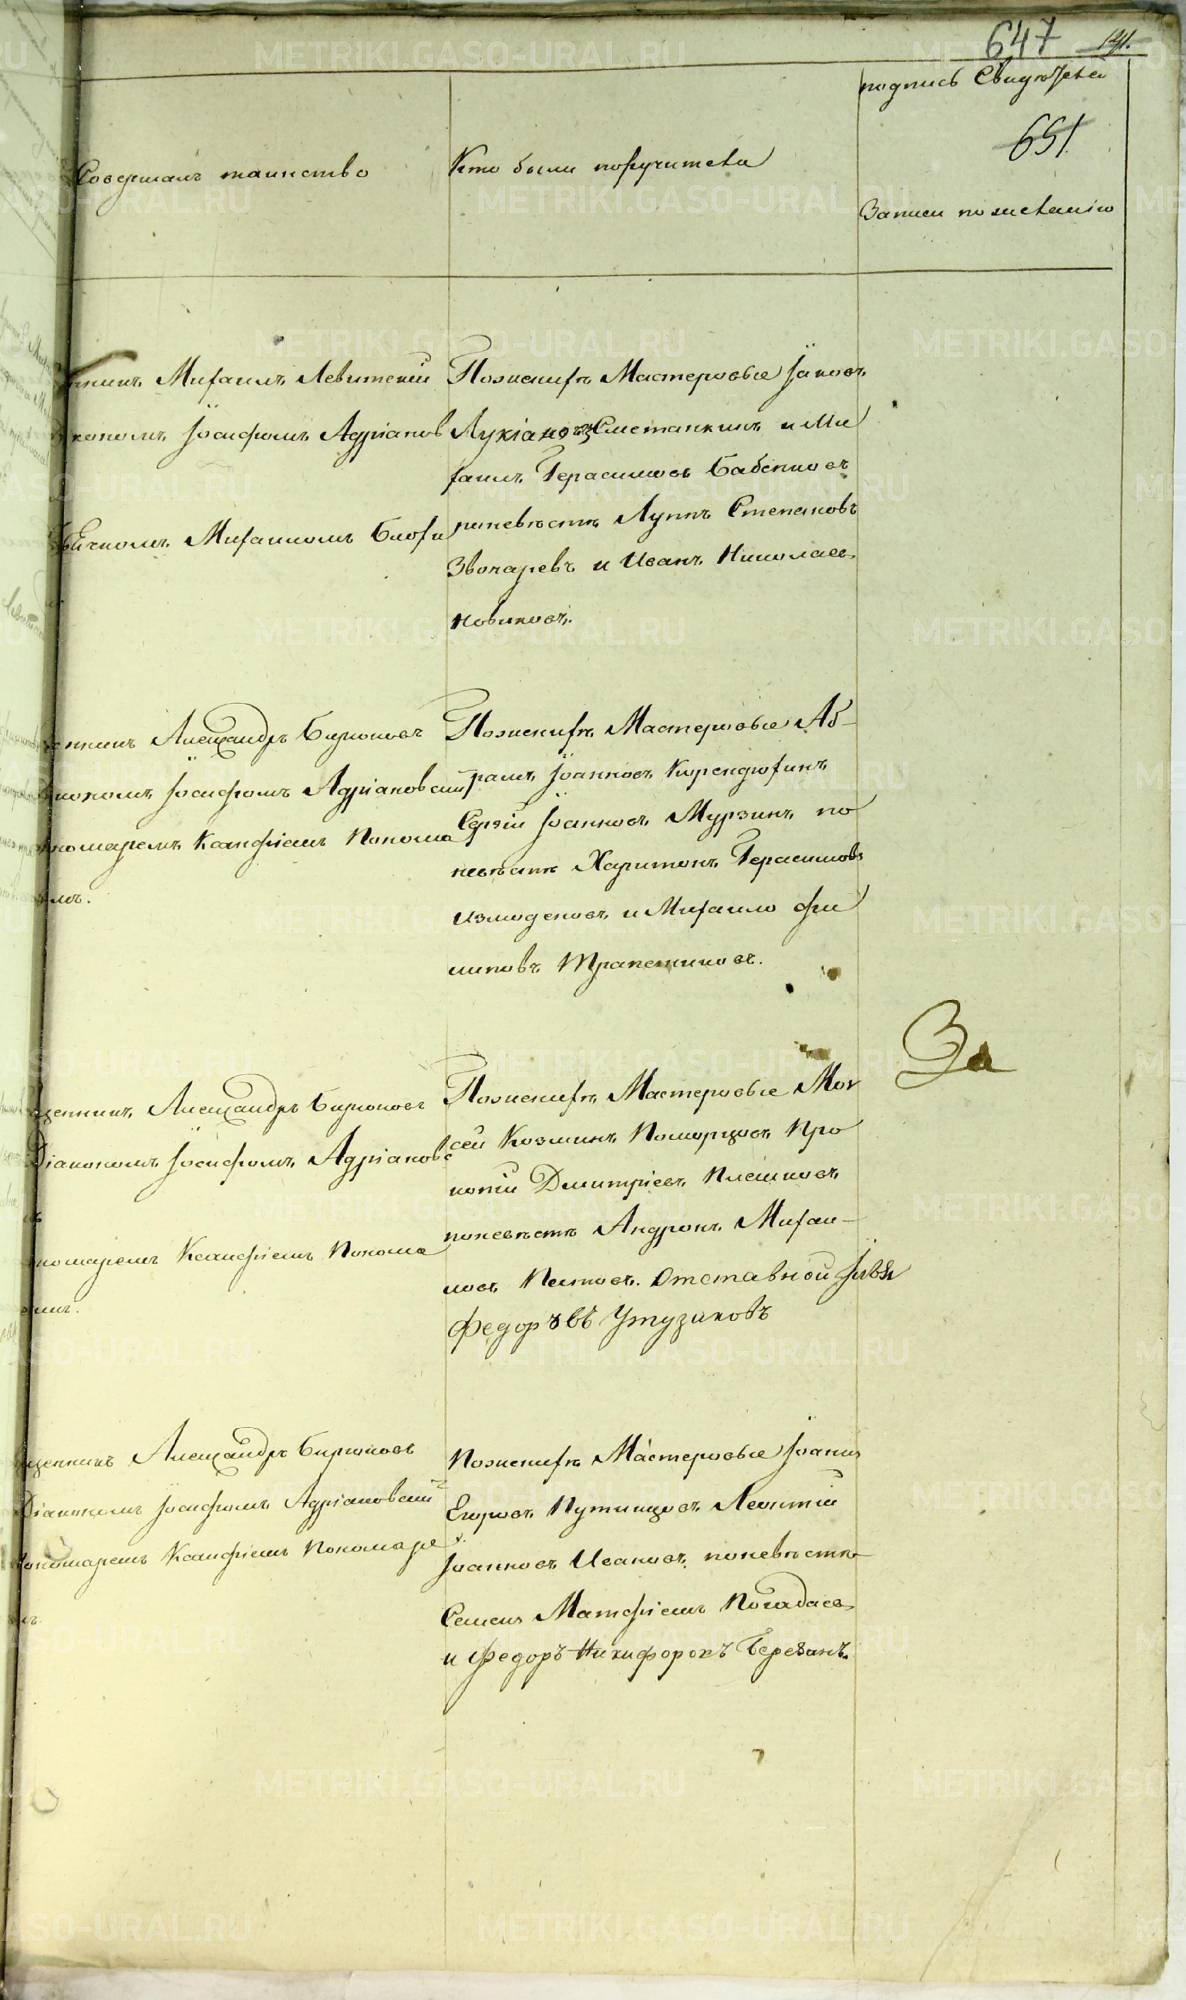 647 141.
подпись Свидѣтеле
651
Совершалъ таинство
Кто были поручители
Записи по желанію
нникъ Михаилъ Левитскій
кономъ Іосифомъ Адріанов
Михаиломъ
Поженихѣ Мастеровые Іаковъ
Лукіановъ Сметанкинъ и Ми
хаилъ Герасимовъ Бабкиновъ
поневѣстѣ Луппъ Степановъ
Звонаревъ и Иванъ Николаев
Новиковъ.
енникъ Александръ Бирюковъ
акономъ Іосифомъ Адріановскій
номаремъ Ксанфіемъ Понома
емъ.
Поженихѣ Мастеровые Аб-
рамъ Іоанновъ Курендюхинъ
Сергій Іоанновъ Мурзинъ по
невѣстѣ Харитонъ Герасимовъ
Измоденовъ и Михаило Фи
липовъ Трапезниковъ.
щенникъ Александръ Бирюковъ
Діакономъ Іосифомъ Адріановс
номаремъ Ксанфіемъ Понома
Поженихѣ Мастеровые Мои
сей Козминъ Поморцовъ Про
копій Дмитріевъ Плешковъ
поневѣстѣ Андронъ Михаи-
ловъ Пестовъ. Отставной
Федоръвъ Утузиковъ
За
щенникъ Александръ Бирюковъ
Діакономъ Іосифомъ Адріановскій
Пономаремъ Ксанфіемъ Пономаре
мъ
Поженихѣ Мастеровые Іоаннъ
Егоровъ Путинцовъ Леонтій
Іоанновъ Ивановъ, поневѣстѣ
Семенъ Матфіевъ Погадаевъ
и Федоръ Никифоровъ Березинъ.